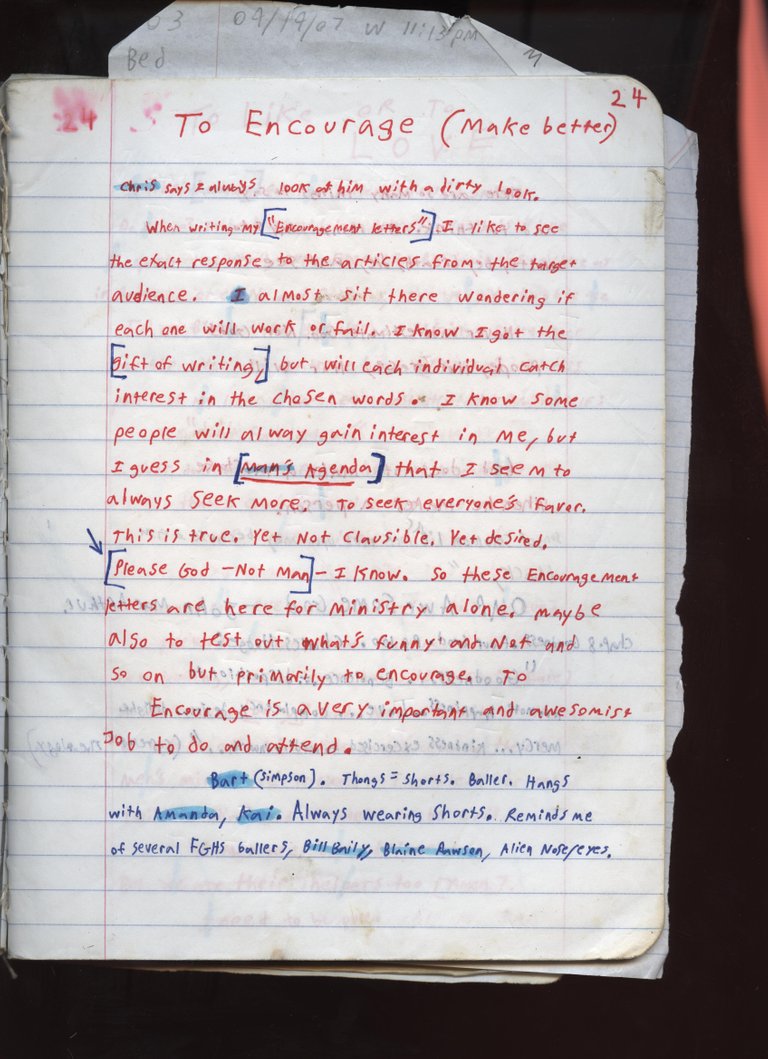 03 09/19/07 W 11:13pm
Bed
24
24
To Encourage (Make better)
Chris says = always look at him with a dirty look.
When writing my ["Encouragement letters"] I like to see
the exact response to the articles from the target
audience. I almost sit there wondering if
each one will work or fail. I know I got the
[gift of writing,] but will each individual catch
interest in the chosen words. I know some
people will alway gain interest in me, but
I guess in [Man's Agenda] that I seem to
always seek more. To seek everyone's favor.
This is true. Yet Not Clausible. Yet desired.
[Please God - Not Man] - I know. So these Encouragement
letters are here for ministry alone. maybe
also to test out what's funny and Not and
so on but primarily to encourage. To
Encourage is a very important and awesomist
Job to do and attend.
Bart (Simpson). Thongs = shorts. Baller. Hangs
with Amanda, Kai. Always wearing shorts. Reminds me
of several FGHS ballers, Bill Baily, Blaine Rawson, Alien Nose/eyes.